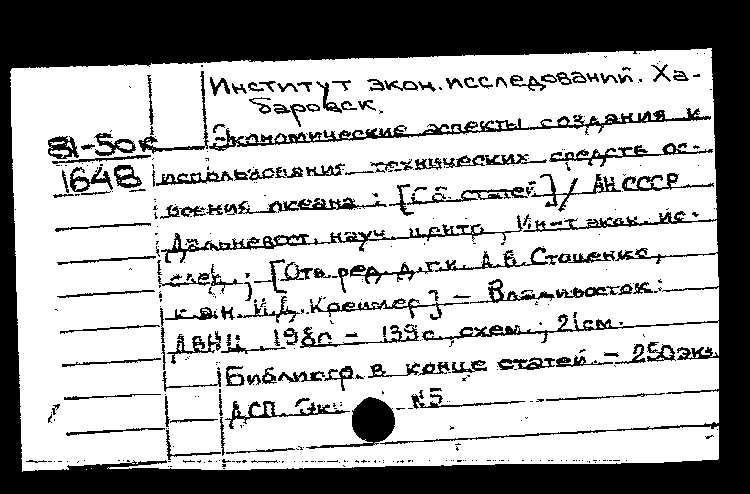 Институт экон. исследований. Ха-
баровск.
81-50к
Экономические аспекты создания и
1648
использования технических средств ос-
воения океана : [Сб. статей] / АН СССР
Дальневост. науч. центр, Ин-т экон. ис-
след. ; [Отв. ред. д.г.н. А.Б. Стаценко,
к.э.н. И.Д. Креймер] - Владивосток :
ДВНЦ, 1980 - 139 с., схем. ; 21 см.
Библиогр. в конце статей. - 250 экз.
ДСП. Экз. №5